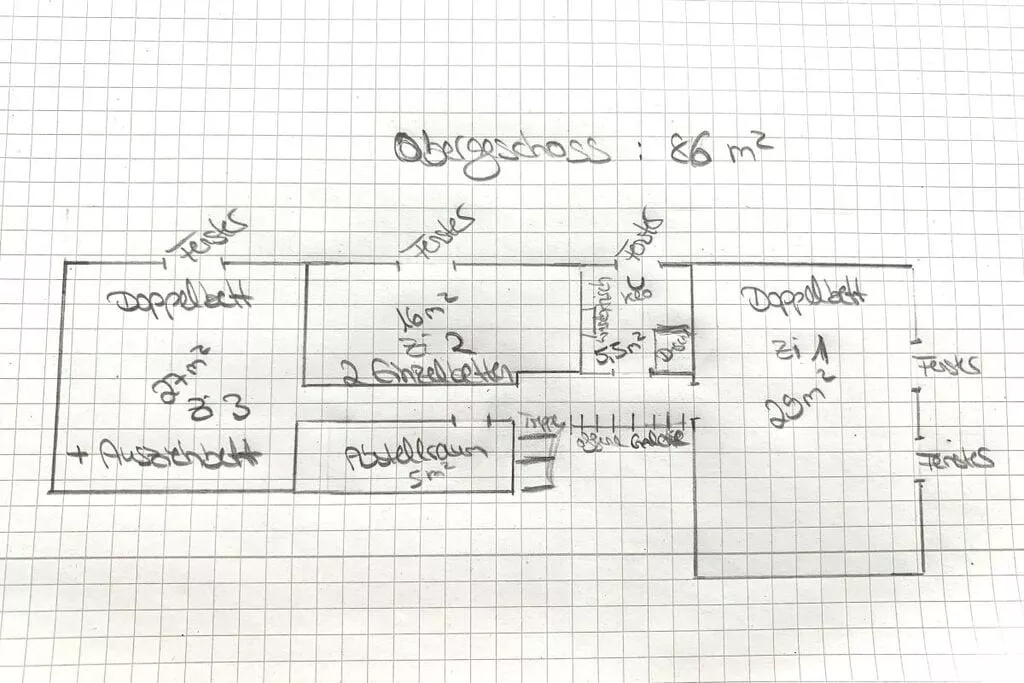 Obergeschoss : 86 m²
Fenster
Fenster
Fenster
Doppelbett
27 m²
Zi 3
+ Ausziehbett
16 m²
Zi 2
2 Einzelbetten
5,5 m²
Doppelbett
Zi 1
29 m²
Fenster
Fenster
Abstellraum
5 m²
Treppe
offene Galerie